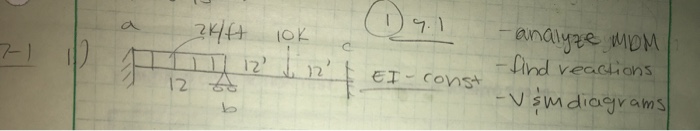 a 2K/ft 10K c
① 9.1
- analyze MDM
7-1 1)
12 12' 12'
EI - const
- find reactions
b
- V & m diagrams